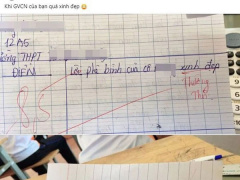 Khi GVCN của bạn quá xinh đẹp 😄
12A5
THPT
ĐIỂN
Lời phê bình của cô xinh đẹp
8,5